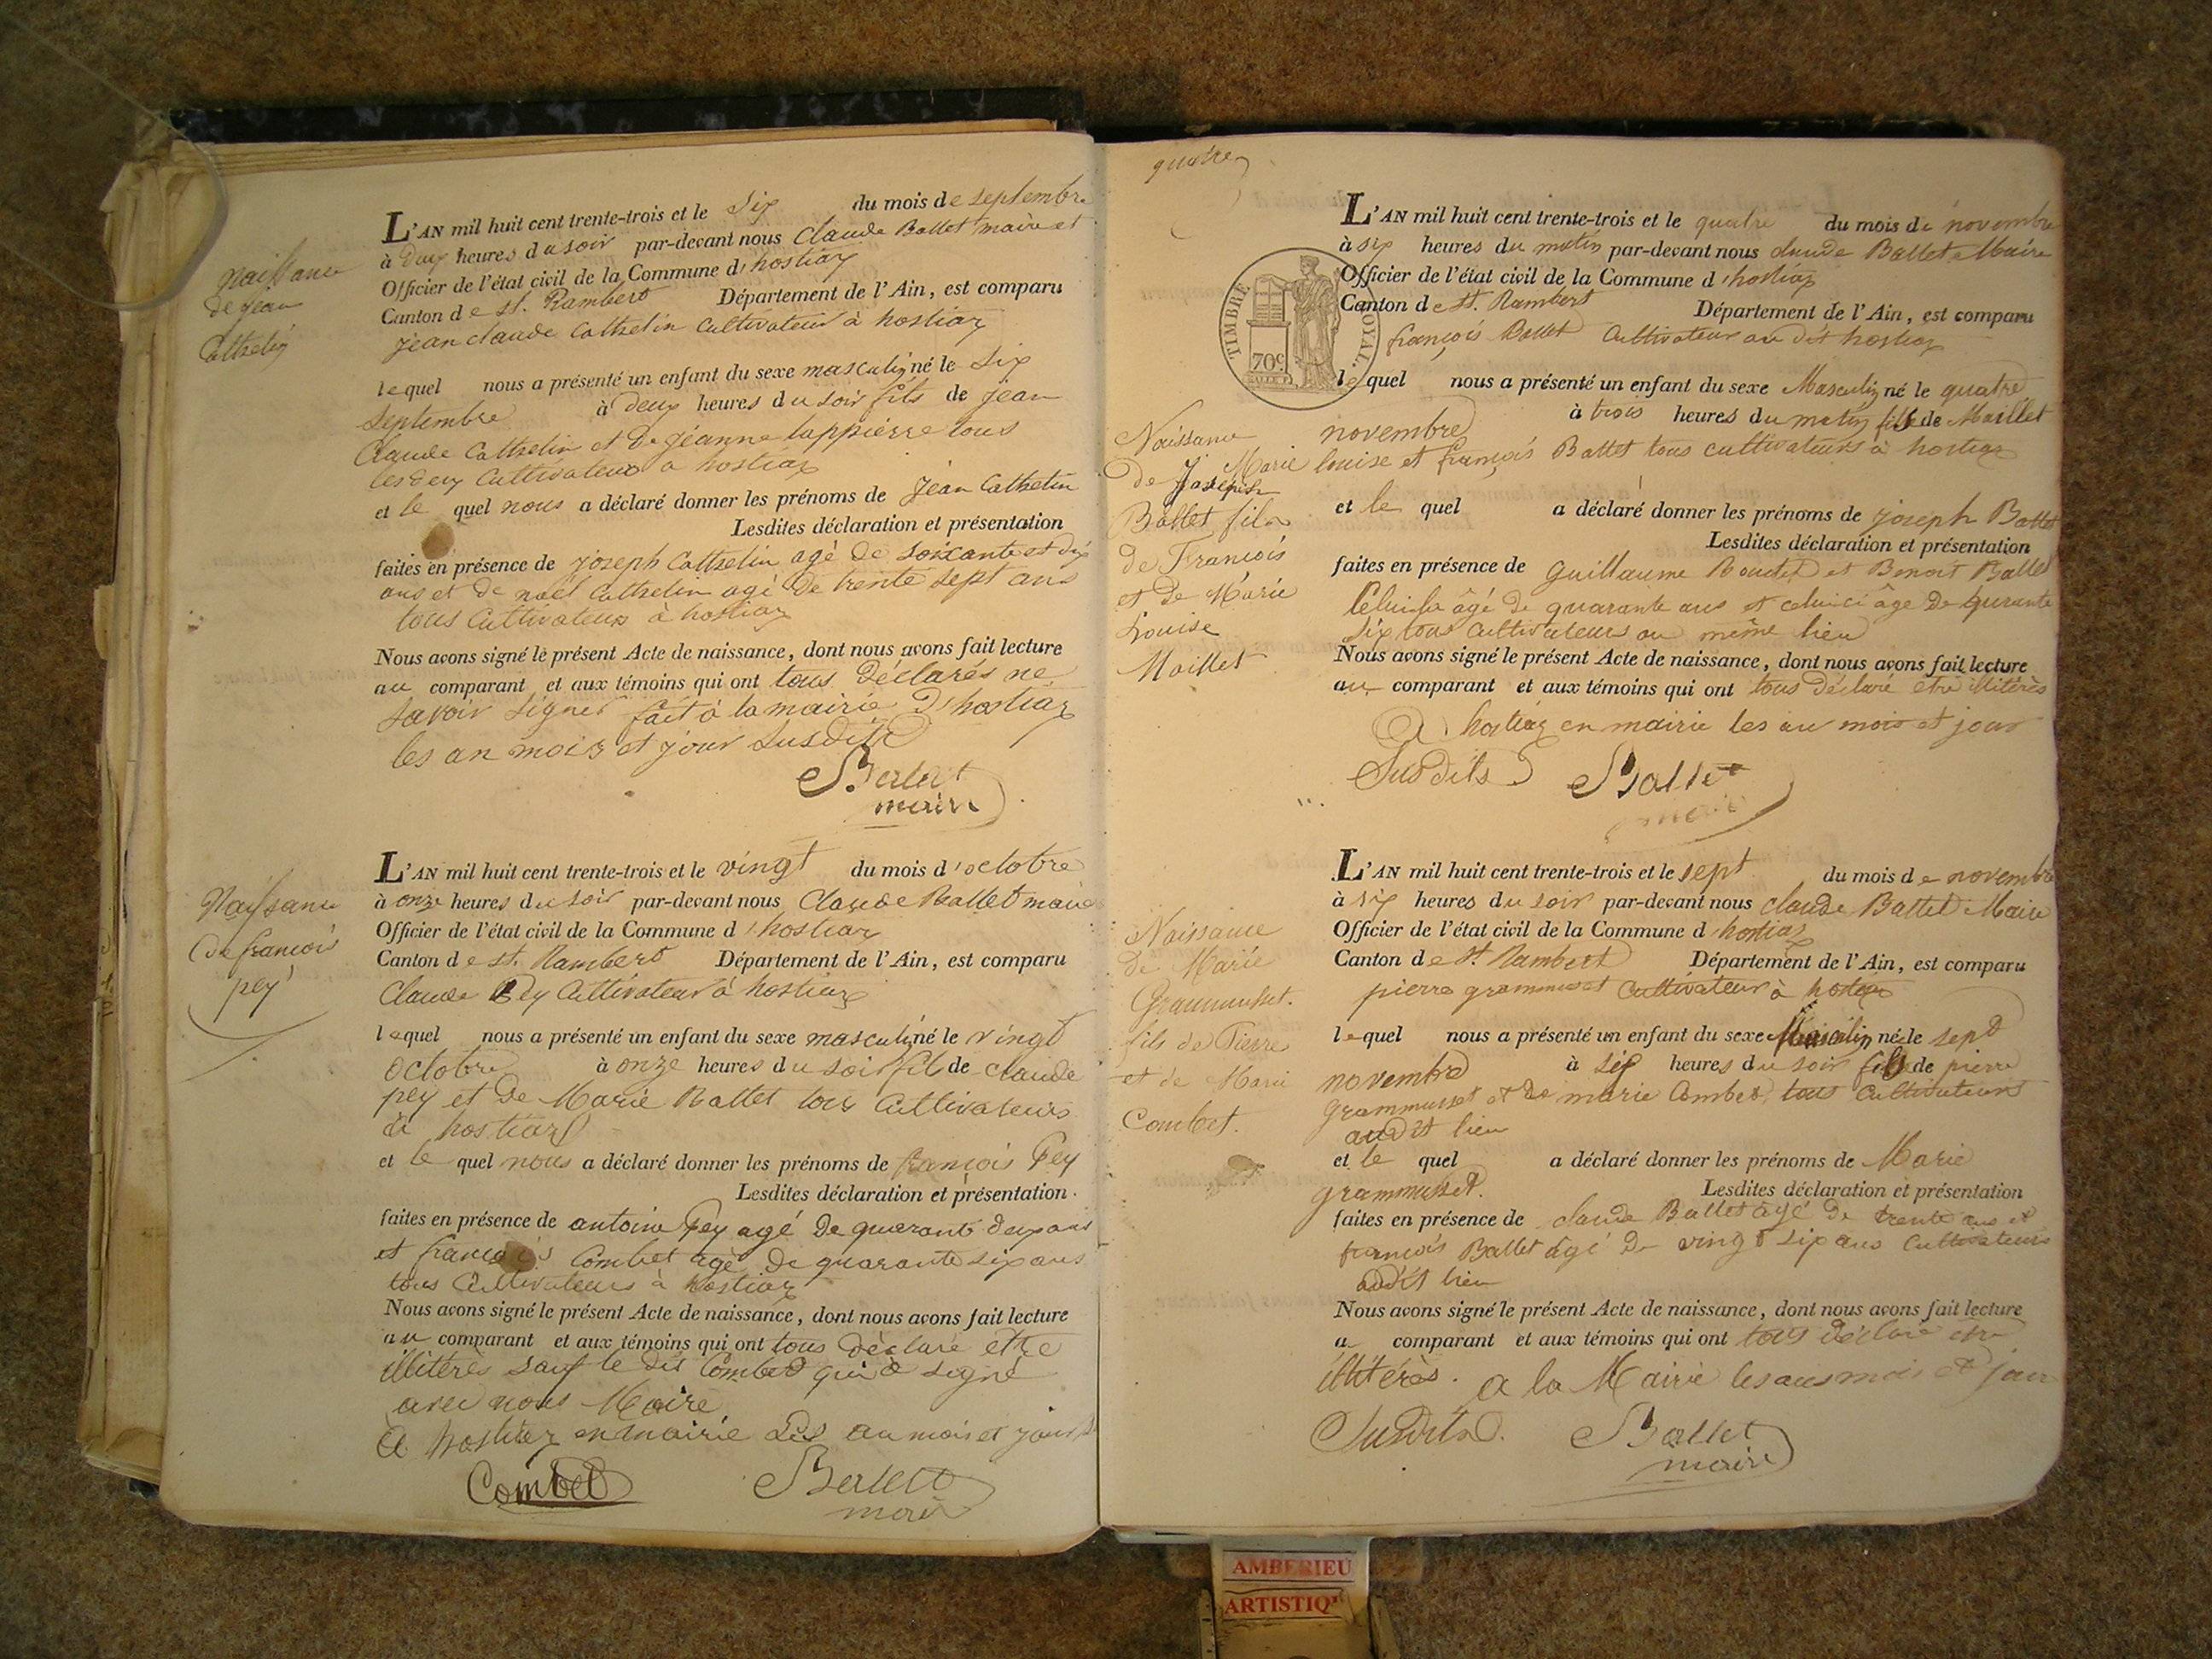 Naissance
de jean
Cathelin
L'AN mil huit cent trente-trois et le six du mois de septembre
à deux heures du soir par-devant nous Claude Ballet maire et
Officier de l'état civil de la Commune d'hostiaz
Canton de st. Rambert Département de l'Ain, est comparu
jean claude Cathelin Cultivateur à hostiaz
lequel nous a présenté un enfant du sexe masculin né le six
septembre à deux heures du soir fils de jean
Claude Cathelin et de jeanne lappierre tous
les deux Cultivateurs a hostiaz
et le quel nous a déclaré donner les prénoms de jean Cathelin
Lesdites déclaration et présentation
faites en présence de joseph Cathelin agé de soixante et dix
ans et de noël Cathelin agé de trente sept ans
tous Cultivateurs à hostiaz
Nous avons signé le présent Acte de naissance, dont nous avons fait lecture
au comparant et aux témoins qui ont tous déclarés ne
savoir signer fait à la mairie d'hostiaz
les an mois et jour susdits
Ballet
maire
Naissance
de francois
pey
L'AN mil huit cent trente-trois et le vingt du mois d'octobre
à onze heures du soir par-devant nous Claude Ballet maire
Officier de l'état civil de la Commune d'hostiaz
Canton de st. Rambert Département de l'Ain, est comparu
Claude Pey Cultivateur à hostiaz
lequel nous a présenté un enfant du sexe masculin né le vingt
octobre à onze heures du soir fil de claude
pey et de Marie Ballet tous Cultivateurs
à hostiaz
et le quel nous a déclaré donner les prénoms de francois Pey
Lesdites déclaration et présentation.
faites en présence de antoine Pey agé de quarante deux ans
et francois Combet agé de quarante six ans
tous Cultivateurs à hostiaz
Nous avons signé le présent Acte de naissance, dont nous avons fait lecture
au comparant et aux témoins qui ont tous déclaré être
illitérés sauf le dit Combet qui a signé
avec nous Maire
A hostiaz en mairie les an mois et jour
Combet Ballet
maire
quatre
TIMBRE ROYAL.
70c.
L'AN mil huit cent trente-trois et le quatre du mois de novembre
à six heures du matin par-devant nous claude Ballet Maire
Officier de l'état civil de la Commune d'hostiaz
Canton de st. Rambert Département de l'Ain, est comparu
françois Ballet Cultivateur au dit hostiaz
lequel nous a présenté un enfant du sexe Masculin né le quatre
novembre à trois heures du matin fils de Maillet
Marie louise et françois Ballet tous cultivateurs à hostiaz
et le quel a déclaré donner les prénoms de joseph Ballet
Lesdites déclaration et présentation
faites en présence de Guillaume et Benoit Ballet
Celui-là âgé de quarante ans et celui-ci âgé de qurante
six tous Cultivateurs au même lieu
Nous avons signé le présent Acte de naissance, dont nous avons fait lecture
au comparant et aux témoins qui ont tous déclaré être illitérés
A hostiaz en mairie les an mois et jour
Susdits Ballet
maire
Naissance
de Joseph
Ballet fils
de François
et de Marie
Louise
Maillet
L'AN mil huit cent trente-trois et le sept du mois de novembre
à six heures du soir par-devant nous claude Ballet Maire
Officier de l'état civil de la Commune d'hostiaz
Canton de st. Rambert Département de l'Ain, est comparu
pierre grammusset Cultivateur à hostiaz
lequel nous a présenté un enfant du sexe Masculin né le sept
novembre à six heures du soir fils de pierre
grammusset et de marie Combet tous Cultivateurs
audit lieu
et le quel a déclaré donner les prénoms de Marie
grammusset. Lesdites déclaration et présentation
faites en présence de claude Ballet agé de trente ans et
françois Ballet âgé de vingt six ans Cultivateurs
audit lieu
Nous avons signé le présent Acte de naissance, dont nous avons fait lecture
au comparant et aux témoins qui ont tous déclaré être
illitérés. a la Mairie les ans mois et jour
Susdits. Ballet
maire
Naissance
de Marie
Grammusset.
fils de Pierre
et de Marie
Combet.
AMBERIEU
ARTISTIQ